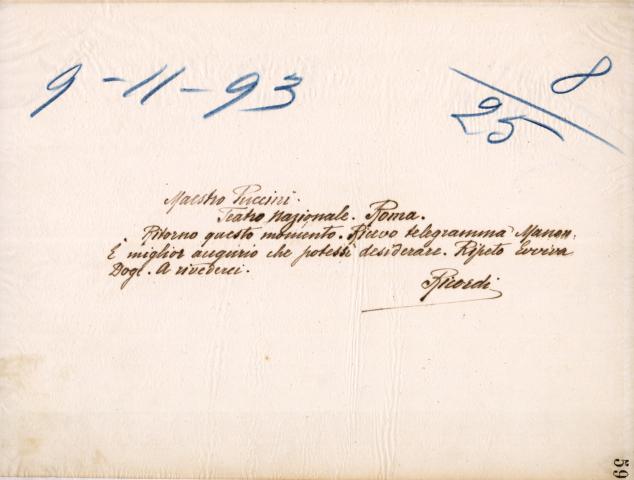 9-11-93
8
25
Maestro Puccini.
Teatro Nazionale. Roma.
Ritorno questo momento. Ricevo telegramma Manon.
È miglior augurio che potessi desiderare. Ripeto Evviva
Doge. A rivederci.
Ricordi
59